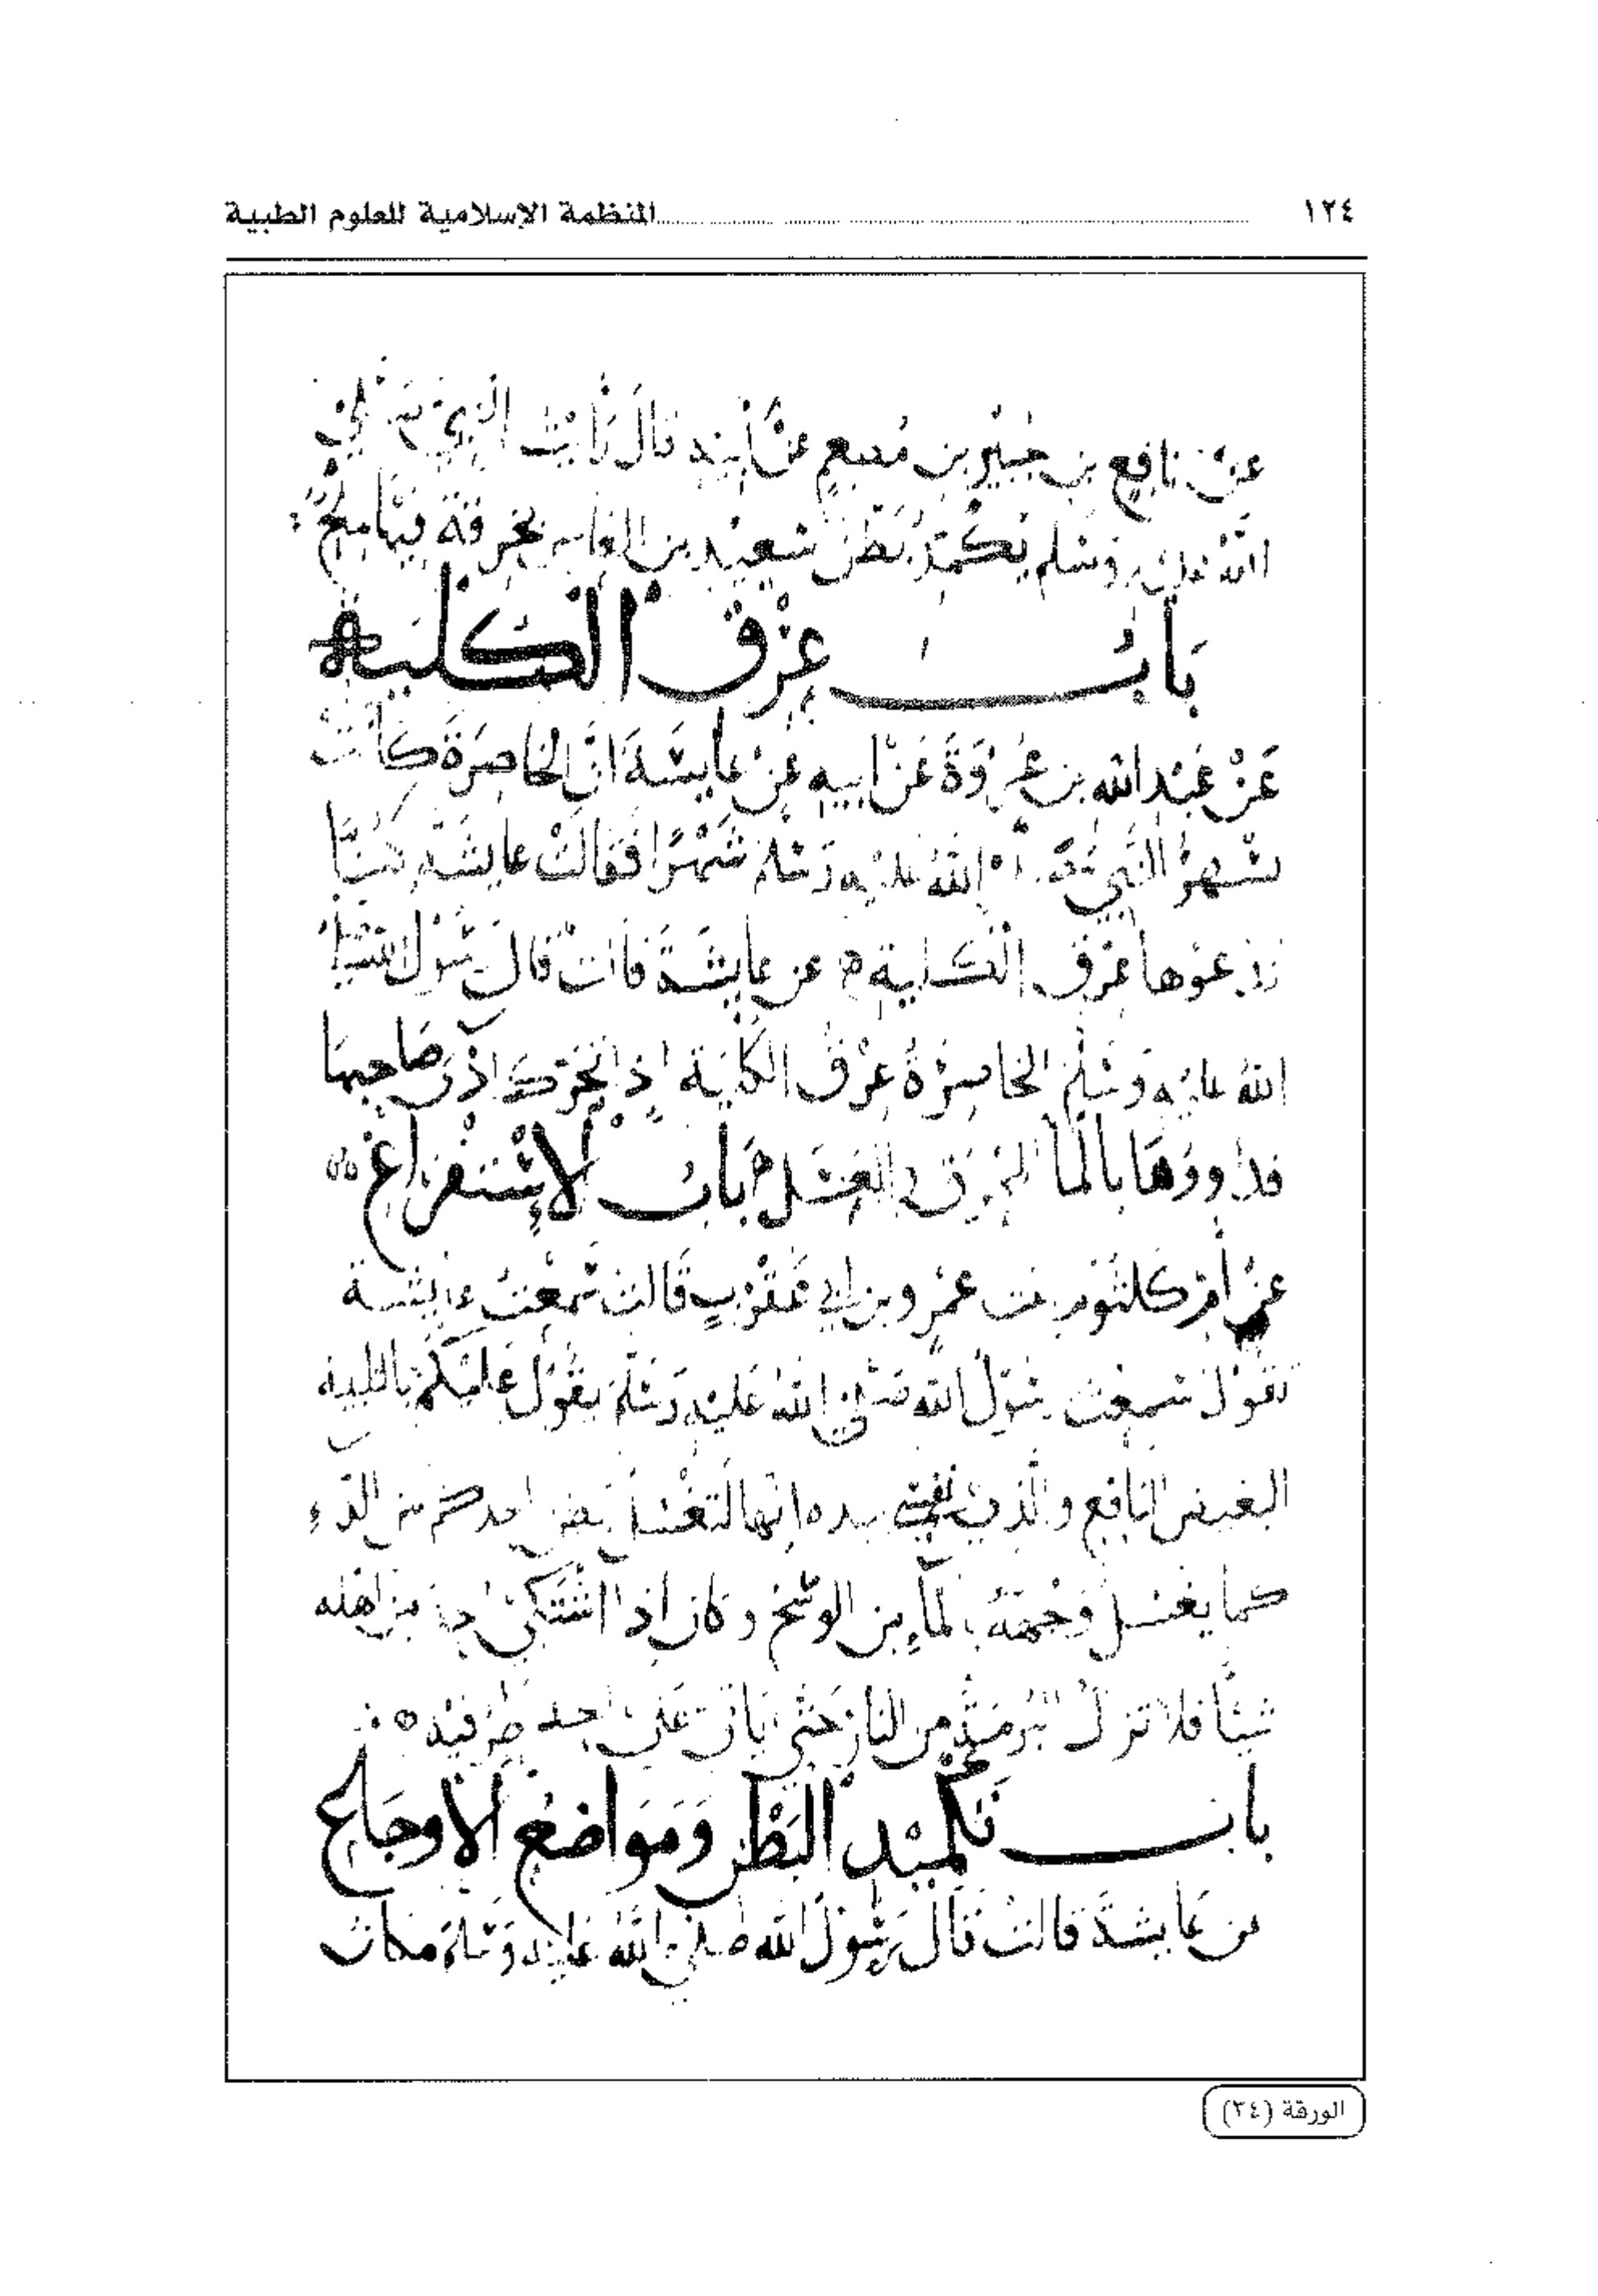 ١٢٤ المنظمة الإسلامية للعلوم الطبية
عن نافع بن جبير بن مطعم عن ابيه قال رايت النبي صلى
الله عليه وسلم يكمد بطن سعيد بن العاص بخرقة فيها ملح
باب عرق الكلية
عن عبد الله بن عروة عن ابيه عن عايشة ان الخاصرة كانت
بالنبي الله عليه وسلم شهرا فقالت عايشة كنا
ندعوها عرق الكلية عن عايشة قالت قال رسول الله صلى
الله عليه وسلم الخاصرة عرق الكلية اذا تحركت اذت صاحبها
فداووها بالماء المحرق والعسل باب الاستفراغ
عن ام كلثوم بنت عمرو بن ابي عقرب قالت سمعت عايشة
تقول سمعت رسول الله صلى الله عليه وسلم يقول عليكم بالتلبينة
البغيض النافع والذي نفسي بيده انها لتغسل بطن احدكم من الداء
كما يغسل وجهه بالماء من الوسخ وكان اذا اشتكى احد من اهله
شيئا فلا تزل البرمة من النار حتى ياتي على احد طرفيه
باب تكميد البطن ومواضع الاوجاع
عن عايشة قالت قال رسول الله صلى الله عليه وسلم مكان
الورقة (٣٤)